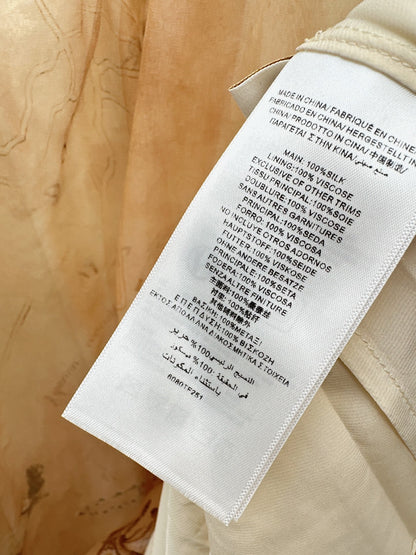 MADE IN CHINA/ FABRIQUÉ EN CHINE/
FABRICADO EN CHINA/ HERGESTELLT IN
CHINA/ PRODOTTO IN CINA/ 中国制造/
ΠΑΡΑΓΕΤΑΙ ΣΤΗΝ ΚΙΝΑ/ صنع في الصين
MAIN: 100% SILK
LINING: 100% VISCOSE
EXCLUSIVE OF OTHER TRIMS
TISSU PRINCIPAL: 100% SOIE
DOUBLURE: 100% VISCOSE
SANS AUTRES GARNITURES
PRINCIPAL: 100% SEDA
FORRO: 100% VISCOSA
NO INCLUYE OTROS ADORNOS
HAUPTSTOFF: 100% SEIDE
FUTTER: 100% VISKOSE
OHNE ANDERE BESÄTZE
PRINCIPALE: 100% SETA
FODERA: 100% VISCOSA
SENZA ALTRE FINITURE
主面料: 100%桑蚕丝
衬里: 100%粘纤
其他辅料除外
ΒΑΣΙΚΗ: 100% ΜΕΤΑΞΙ
ΕΠΕΝΔΥΣΗ: 100% ΒΙΣΚΟΖΗ
ΕΚΤΟΣ ΑΠΟ ΑΛΛΑ ΔΙΑΚΟΣΜΗΤΙΚΑ ΣΤΟΙΧΕΙΑ
النسيج الرئيسي 100% حرير
100% فيسكوز
باستثناء المكونات